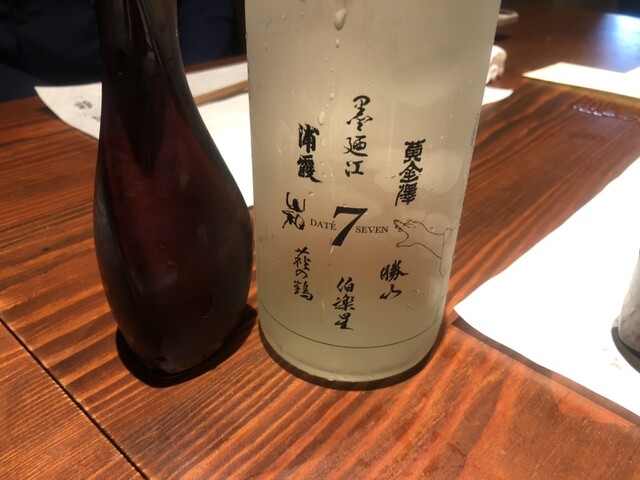 墨廼江
浦霞
黄金澤
山和
DATÉ 7 SEVEN
萩の鶴
伯楽星
勝山